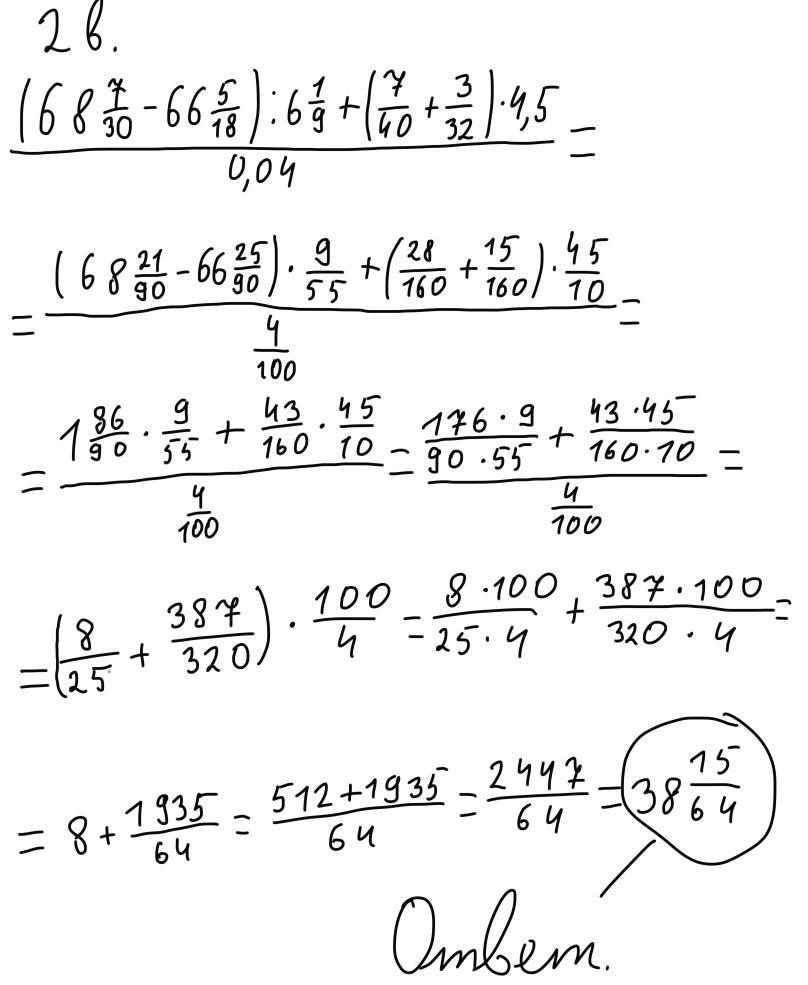 2 в.
((68 7/30 - 66 5/18) : 6 1/9 + (7/40 + 3/32) · 4,5) / 0,04 =
= ((68 21/90 - 66 25/90) · 9/55 + (28/160 + 15/160) · 45/10) / (4/100) =
= (1 86/90 · 9/55 + 43/160 · 45/10) / (4/100) = ((176 · 9)/(90 · 55) + (43 · 45)/(160 · 10)) / (4/100) =
= (8/25 + 387/320) · 100/4 = (8 · 100)/(25 · 4) + (387 · 100)/(320 · 4) =
= 8 + 1935/64 = (512 + 1935)/64 = 2447/64 = 38 15/64
Ответ.